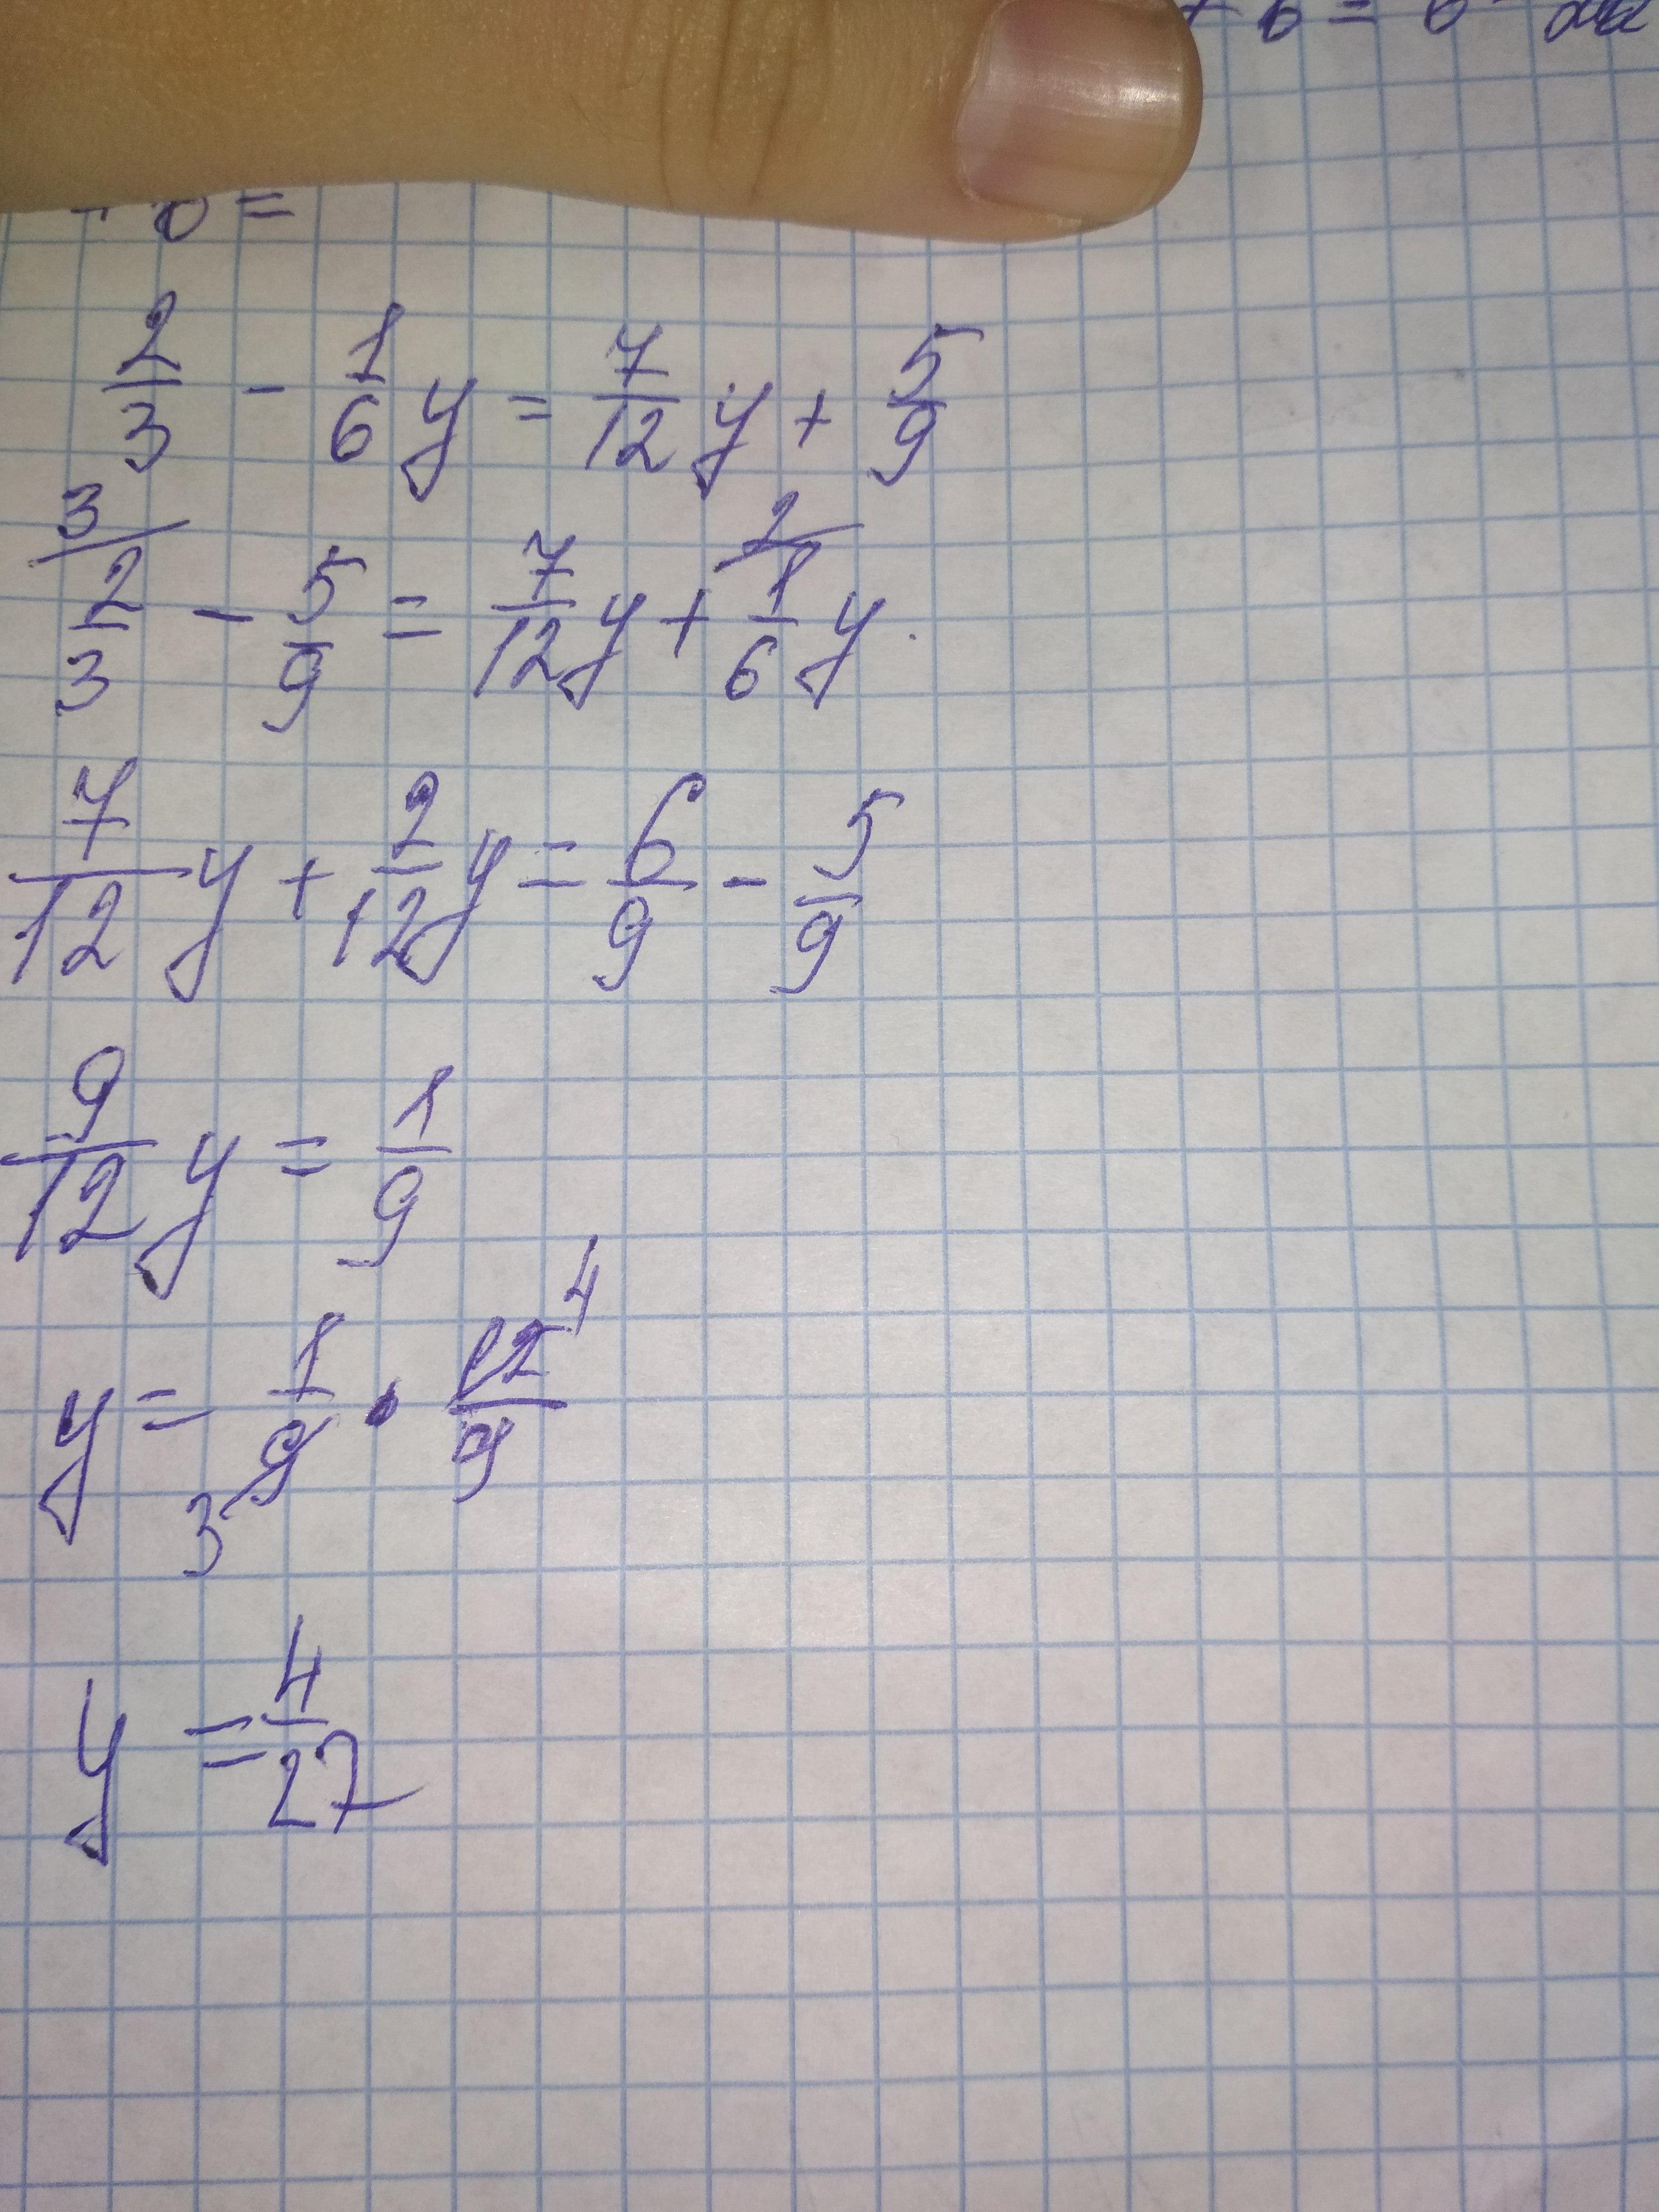 + 6 = 6
+ 6 =
2/3 - 1/6 y = 7/12 y + 5/9
3/ 2/3 - 5/9 = 7/12 y + 2/ 1/6 y.
7/12 y + 2/12 y = 6/9 - 5/9
9/12 y = 1/9
y = 1/9 3 · 12/9 4
y = 4/27